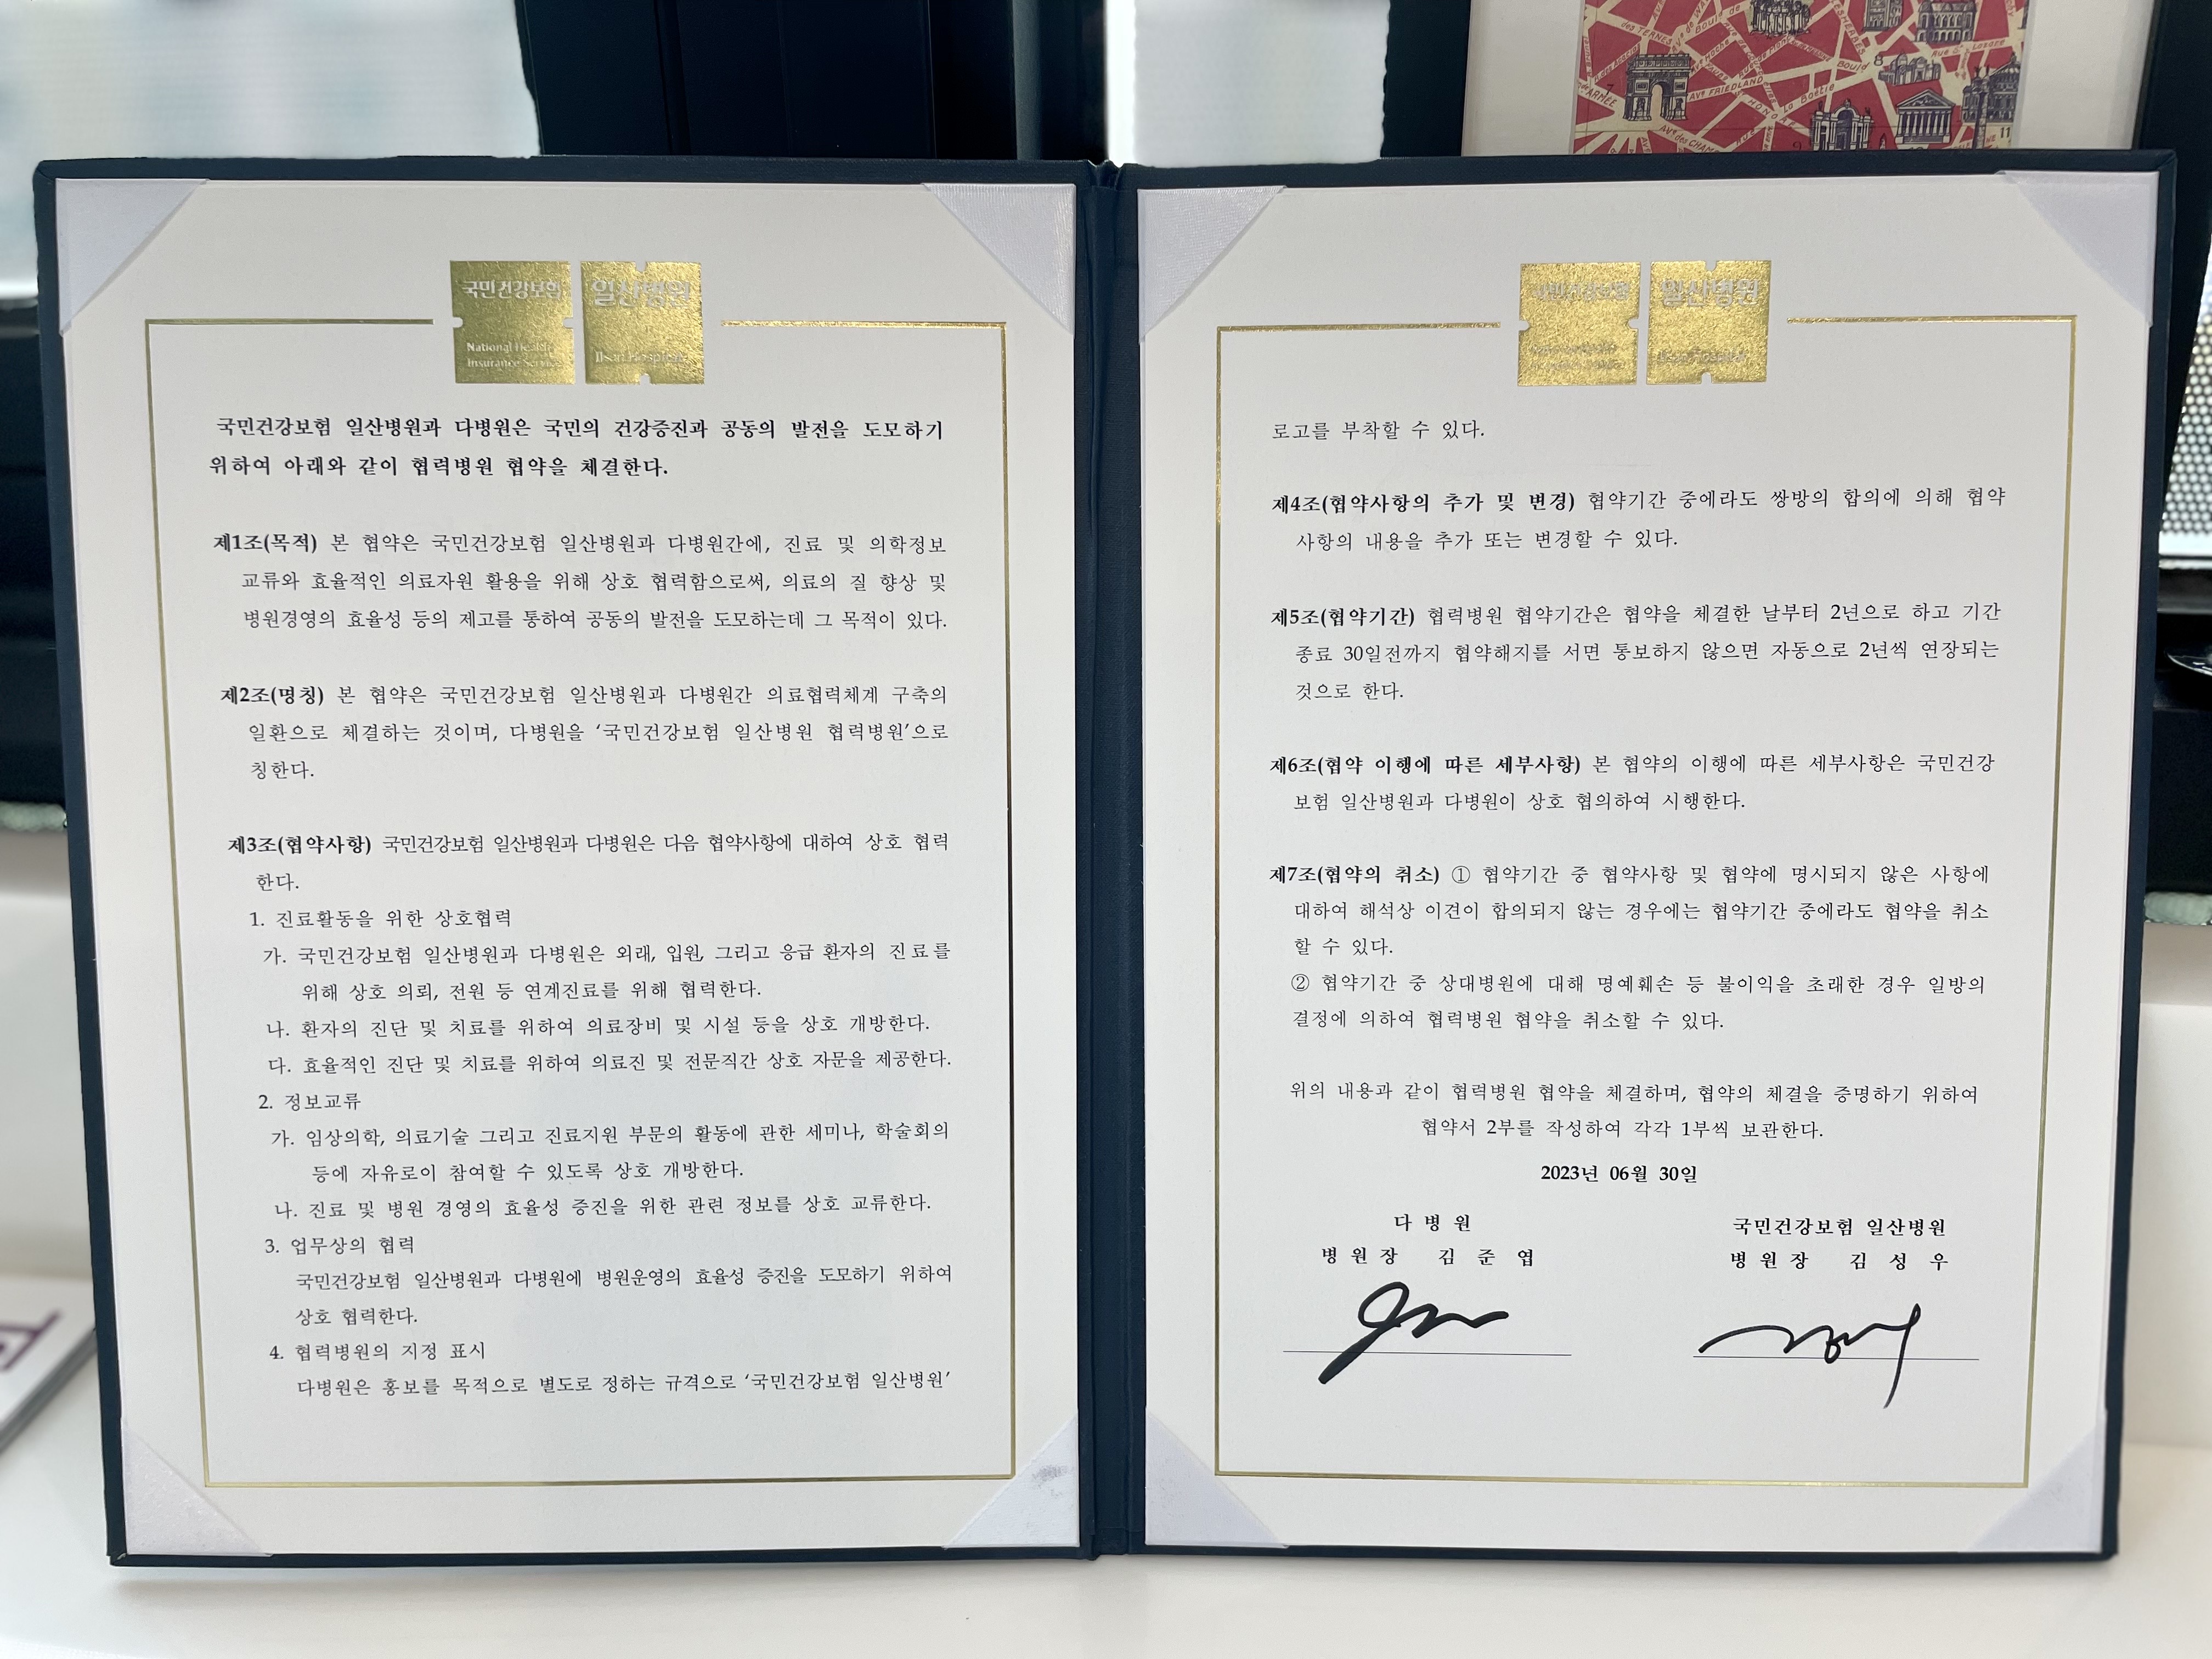 국민건강보험
일산병원
National Health
Insurance Service
Ilsan Hospital
국민건강보험 일산병원과 다병원은 국민의 건강증진과 공동의 발전을 도모하기
위하여 아래와 같이 협력병원 협약을 체결한다.
제1조(목적) 본 협약은 국민건강보험 일산병원과 다병원간에, 진료 및 의학정보
교류와 효율적인 의료자원 활용을 위해 상호 협력함으로써, 의료의 질 향상 및
병원경영의 효율성 등의 제고를 통하여 공동의 발전을 도모하는데 그 목적이 있다.
제2조(명칭) 본 협약은 국민건강보험 일산병원과 다병원간 의료협력체계 구축의
일환으로 체결하는 것이며, 다병원을 '국민건강보험 일산병원 협력병원'으로
칭한다.
제3조(협약사항) 국민건강보험 일산병원과 다병원은 다음 협약사항에 대하여 상호 협력
한다.
1. 진료활동을 위한 상호협력
가. 국민건강보험 일산병원과 다병원은 외래, 입원, 그리고 응급 환자의 진료를
위해 상호 의뢰, 전원 등 연계진료를 위해 협력한다.
나. 환자의 진단 및 치료를 위하여 의료장비 및 시설 등을 상호 개방한다.
다. 효율적인 진단 및 치료를 위하여 의료진 및 전문직간 상호 자문을 제공한다.
2. 정보교류
가. 임상의학, 의료기술 그리고 진료지원 부문의 활동에 관한 세미나, 학술회의
등에 자유로이 참여할 수 있도록 상호 개방한다.
나. 진료 및 병원 경영의 효율성 증진을 위한 관련 정보를 상호 교류한다.
3. 업무상의 협력
국민건강보험 일산병원과 다병원에 병원운영의 효율성 증진을 도모하기 위하여
상호 협력한다.
4. 협력병원의 지정 표시
다병원은 홍보를 목적으로 별도로 정하는 규격으로 '국민건강보험 일산병원'
국민건강보험
일산병원
Ilsan Hospital
로고를 부착할 수 있다.
제4조(협약사항의 추가 및 변경) 협약기간 중에라도 쌍방의 합의에 의해 협약
사항의 내용을 추가 또는 변경할 수 있다.
제5조(협약기간) 협력병원 협약기간은 협약을 체결한 날부터 2년으로 하고 기간
종료 30일전까지 협약해지를 서면 통보하지 않으면 자동으로 2년씩 연장되는
것으로 한다.
제6조(협약 이행에 따른 세부사항) 본 협약의 이행에 따른 세부사항은 국민건강
보험 일산병원과 다병원이 상호 협의하여 시행한다.
제7조(협약의 취소) ① 협약기간 중 협약사항 및 협약에 명시되지 않은 사항에
대하여 해석상 이견이 합의되지 않는 경우에는 협약기간 중에라도 협약을 취소
할 수 있다.
② 협약기간 중 상대병원에 대해 명예훼손 등 불이익을 초래한 경우 일방의
결정에 의하여 협력병원 협약을 취소할 수 있다.
위의 내용과 같이 협력병원 협약을 체결하며, 협약의 체결을 증명하기 위하여
협약서 2부를 작성하여 각각 1부씩 보관한다.
2023년 06월 30일
다 병 원
병 원 장 김 준 엽
국민건강보험 일산병원
병 원 장 김 성 우
AVE FRIEDLAND